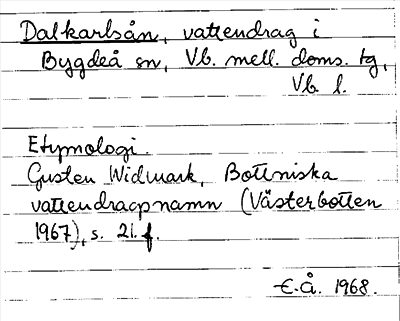 Dalkarlsån, vattendrag i
Bygdeå sn, Vb. mell. doms. tg,
Vb l.
Etymologi.
Gusten Widmark, Bottniska
vattendragsnamn (Västerbotten
1967), s. 21 f.
E.Å. 1968.